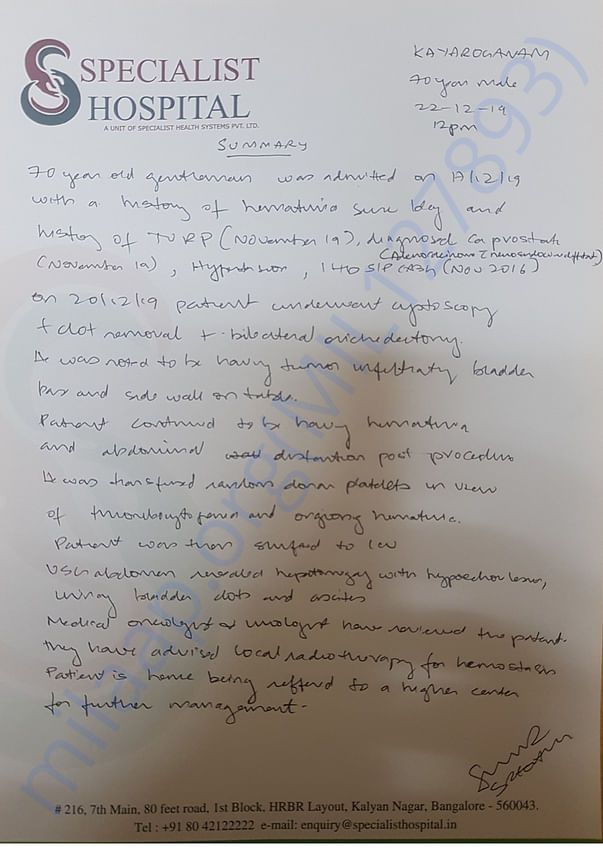 SPECIALIST
HOSPITAL
A UNIT OF SPECIALIST HEALTH SYSTEMS PVT. LTD.
KAYAROGANAM
70 year male
22-12-19
12pm
SUMMARY
70 year old gentleman was admitted on 17/12/19
with a history of hematuria since 1day and
history of TURP (November 19), diagnosed Ca prostate
(November 19), Hypertension, S/P (Nov 2016)
on 20/12/19 patient underwent cystoscopy
+ clot removal + bilateral orichedectomy.
He was noted to be having tumor infiltraty bladder
and side wall on table.
Patient continued to be having hematuria
and abdominal distention post procedure
He was transfused random donor platelets in view
of thrombocytopenia and ongoing hematuria.
Patient was then shifted to ICU
USG abdomen revealed hepatomegaly with hypoechoic lesion,
urinary bladder clots and ascites
Medical oncologist & urologist have reviewed the patient.
They have advised local radiotherapy for hemostasis
Patient is hence being reffered to a higher center
for further management.
# 216, 7th Main, 80 feet road, 1st Block, HRBR Layout, Kalyan Nagar, Bangalore - 560043.
Tel : +91 80 42122222 e-mail: enquiry@specialisthospital.in
milaap.org(MIL1237893)